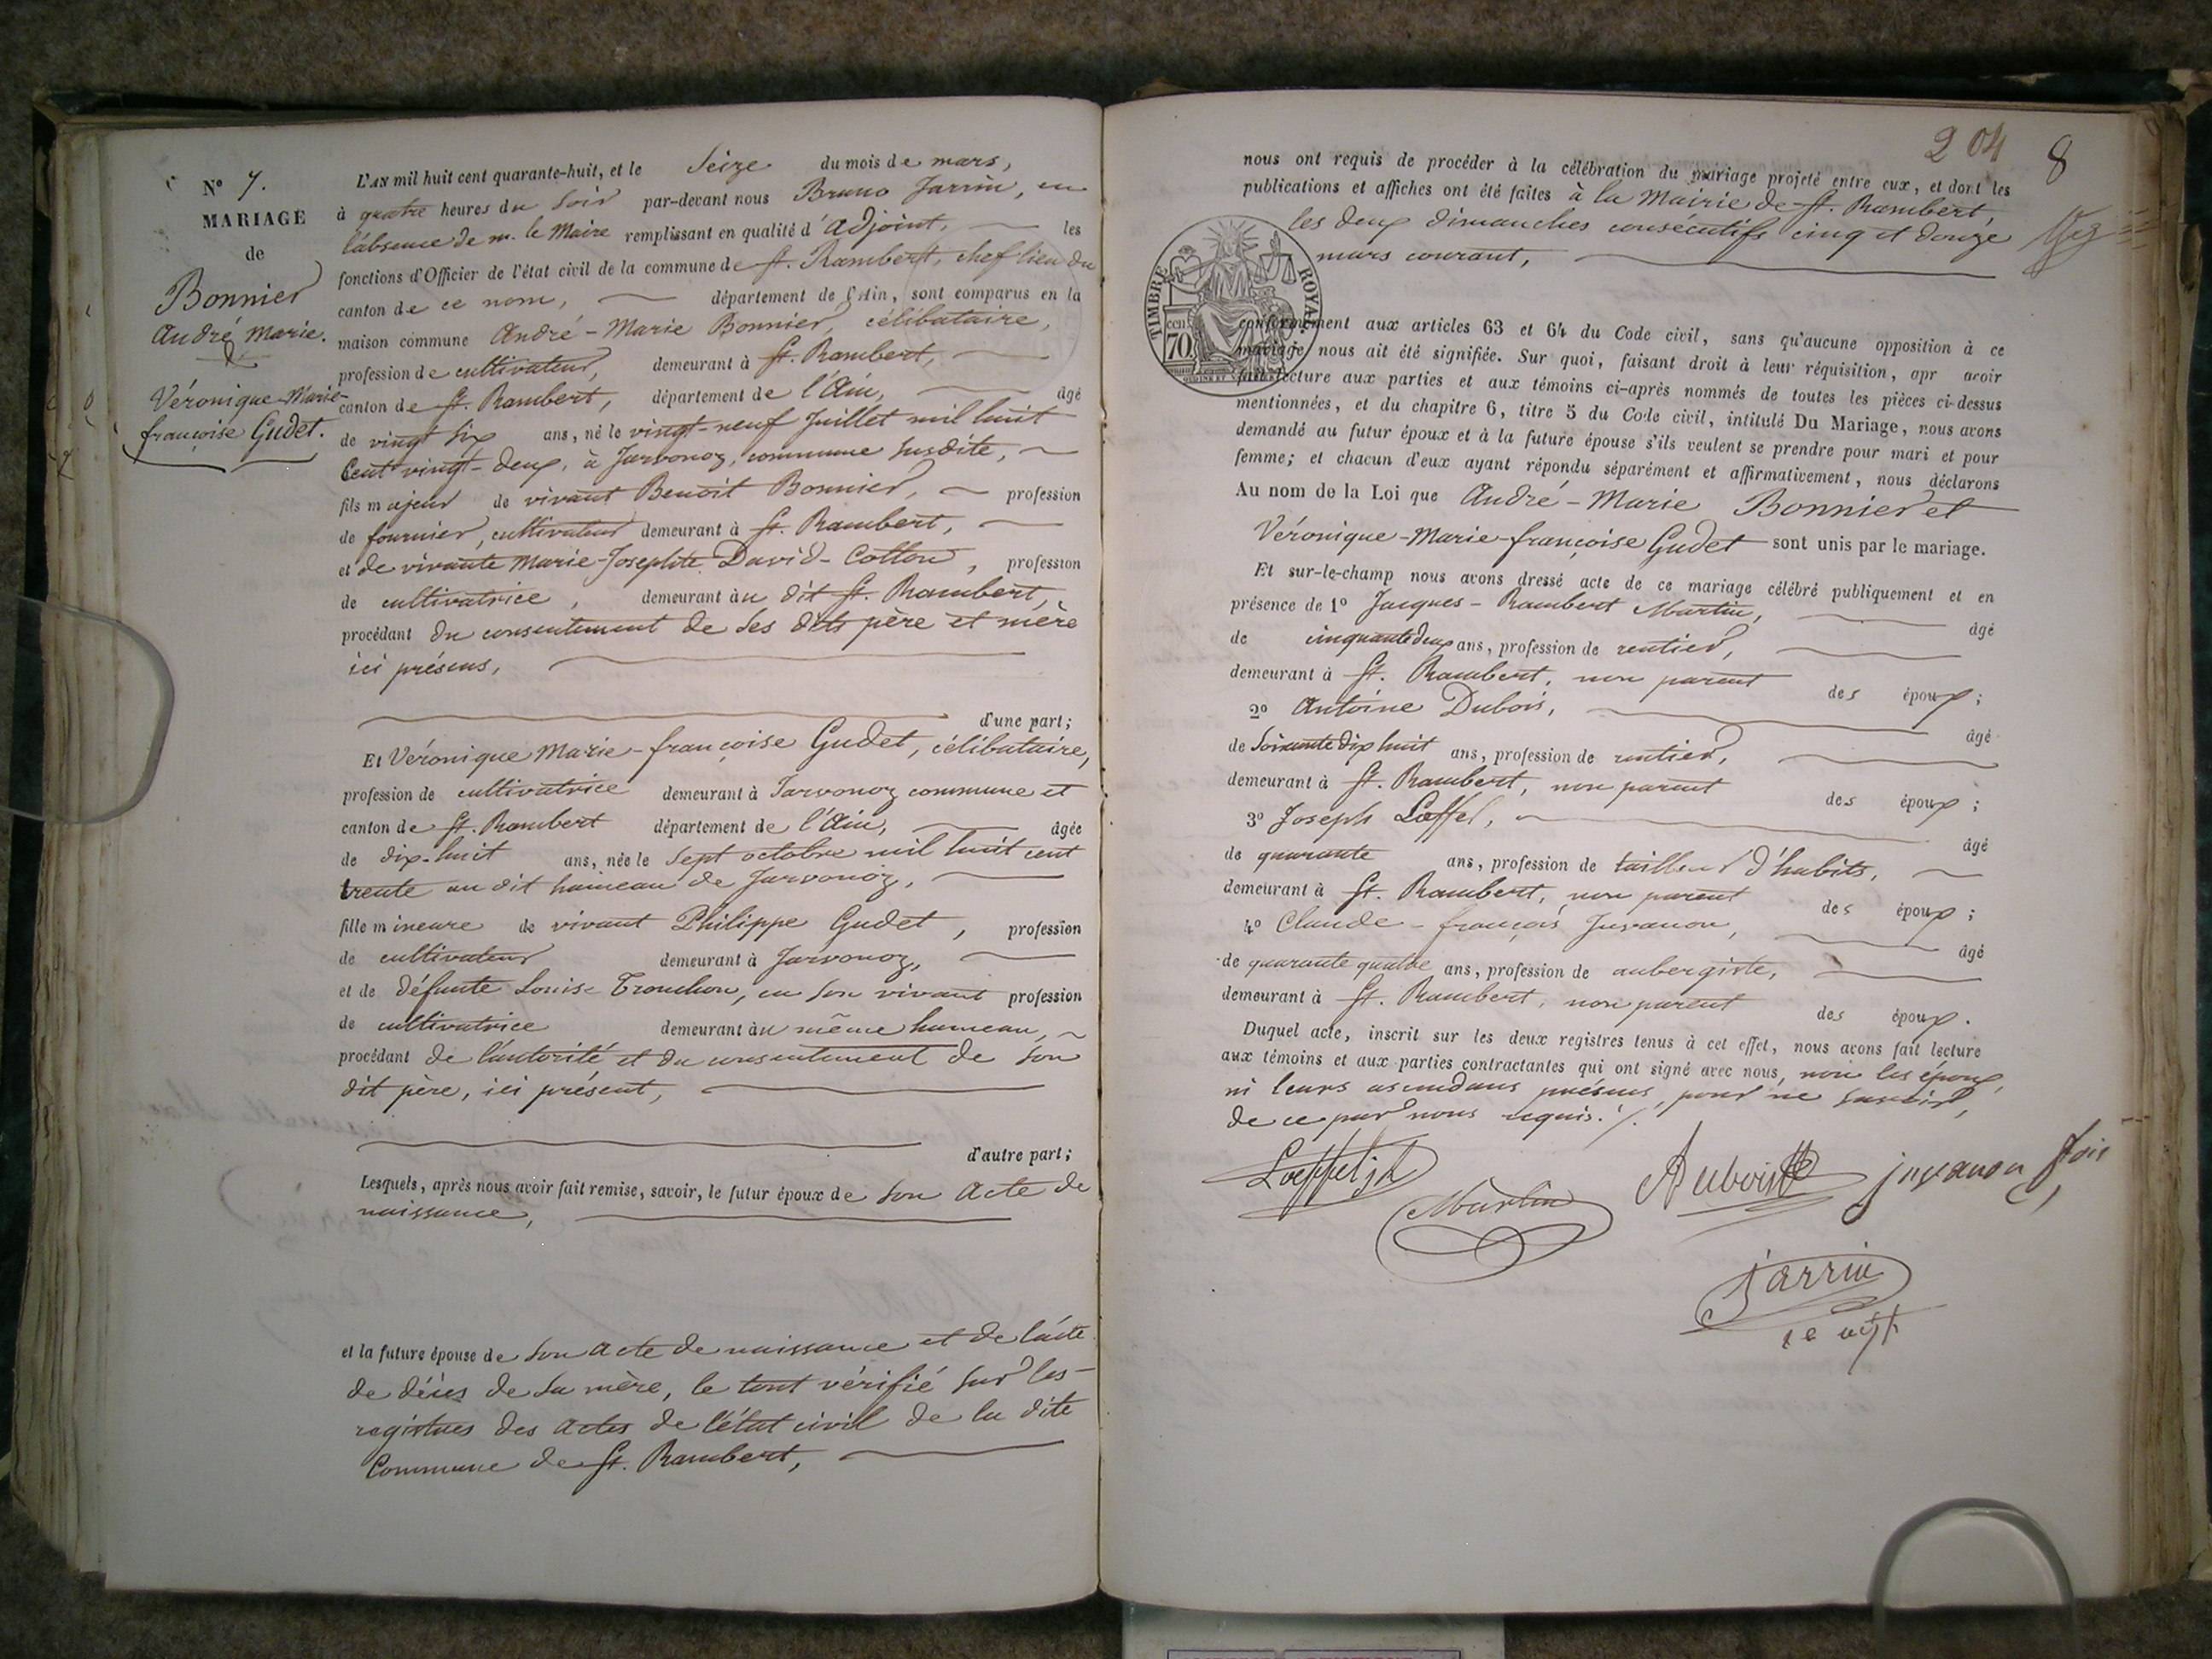 N° 7.
MARIAGE
de
Bonnier
André Marie.
&
Véronique-Marie-
françoise Gudet.
L'AN mil huit cent quarante-huit, et le Seize du mois de mars,
à quatre heures du soir par-devant nous Bruno Jarrin, en
l'absence de m. le Maire remplissant en qualité d'adjoint, les
fonctions d'Officier de l'état civil de la commune de St. Rambert, chef lieu du
canton de ce nom, département de l'Ain, sont comparus en la
maison commune André-Marie Bonnier, célibataire,
profession de cultivateur, demeurant à St. Rambert,
canton de St. Rambert, département de l'Ain, âgé
de vingt six ans, né le vingt-neuf Juillet mil huit
Cent vingt-deux, à Javornoz, commune susdite,
fils majeur de vivant Benoit Bonnier, profession
de fournier, cultivateur demeurant à St. Rambert,
et de vivante Marie-Josephte David-Collon, profession
de cultivatrice, demeurant au dit St. Rambert,
procédant du consentement de ses dits père et mère
ici présens,
d'une part;
Et Véronique Marie-françoise Gudet, célibataire,
profession de cultivatrice demeurant à Javornoz commune et
canton de St. Rambert département de l'Ain, âgée
de dix-huit ans, née le sept octobre mil huit cent
trente au dit hameau de Javornoz,
fille mineure de vivant Philippe Gudet, profession
de cultivateur demeurant à Javornoz,
et de défunte Louise Tronchon, en son vivant profession
de cultivatrice demeurant au même hameau,
procédant de l'autorité et du consentement de son
dit père, ici présent,
d'autre part;
Lesquels, après nous avoir fait remise, savoir, le futur époux de son acte de
naissance,
et la future épouse de son acte de naissance et de l'acte
de décès de sa mère, le tout vérifié sur les
registres des actes de l'état civil de la dite
Commune de St. Rambert,
204
8
nous ont requis de procéder à la célébration du mariage projeté entre eux, et dont les
publications et affiches ont été faites à la Mairie de St. Rambert,
les deux dimanches consécutifs cinq et douze
mars courant,
TIMBRE ROYAL
cen
70
conformément aux articles 63 et 64 du Code civil, sans qu'aucune opposition à ce
mariage, nous ait été signifiée. Sur quoi, faisant droit à leur réquisition, apr avoir
fait lecture aux parties et aux témoins ci-après nommés de toutes les pièces ci-dessus
mentionnées, et du chapitre 6, titre 5 du Code civil, intitulé Du Mariage, nous avons
demandé au futur époux et à la future épouse s'ils veulent se prendre pour mari et pour
femme; et chacun d'eux ayant répondu séparément et affirmativement, nous déclarons
Au nom de la Loi que André-Marie Bonnier et
Véronique-Marie-françoise Gudet sont unis par le mariage.
Et sur-le-champ nous avons dressé acte de ce mariage célébré publiquement et en
présence de 1° Jacques-Rambert Martin, âgé
de cinquante deux ans, profession de rentier,
demeurant à St. Rambert, non parent des époux;
2° Antoine Dubois, âgé
de Soixante dix huit ans, profession de rentier,
demeurant à St. Rambert, non parent des époux;
3° Joseph Loffel, âgé
de quarante ans, profession de tailleur d'habits,
demeurant à St. Rambert, non parent des époux;
4° Claude-françois Juvanon, âgé
de quarante quatre ans, profession de aubergiste,
demeurant à St. Rambert, non parent des époux.
Duquel acte, inscrit sur les deux registres tenus à cet effet, nous avons fait lecture
aux témoins et aux parties contractantes qui ont signé avec nous, non les époux,
ni leurs ascendans présens, pour ne savoir,
de ce par nous requis. /.
Martin
Juvanon
Jarrin